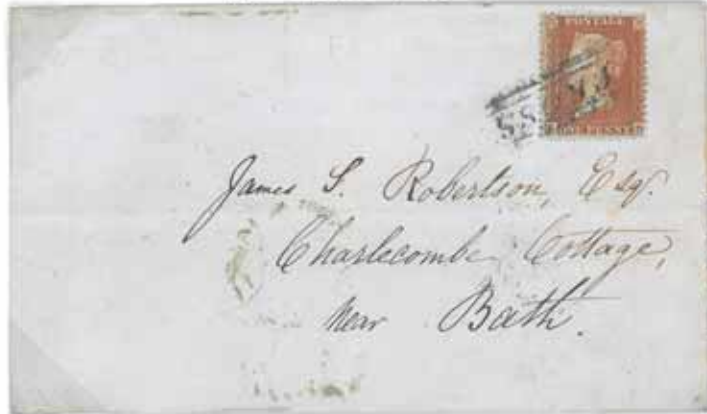 POSTAGE
ONE PENNY
James S. Robertson, Esqr.
Charlecombe Cottage,
Near Bath.